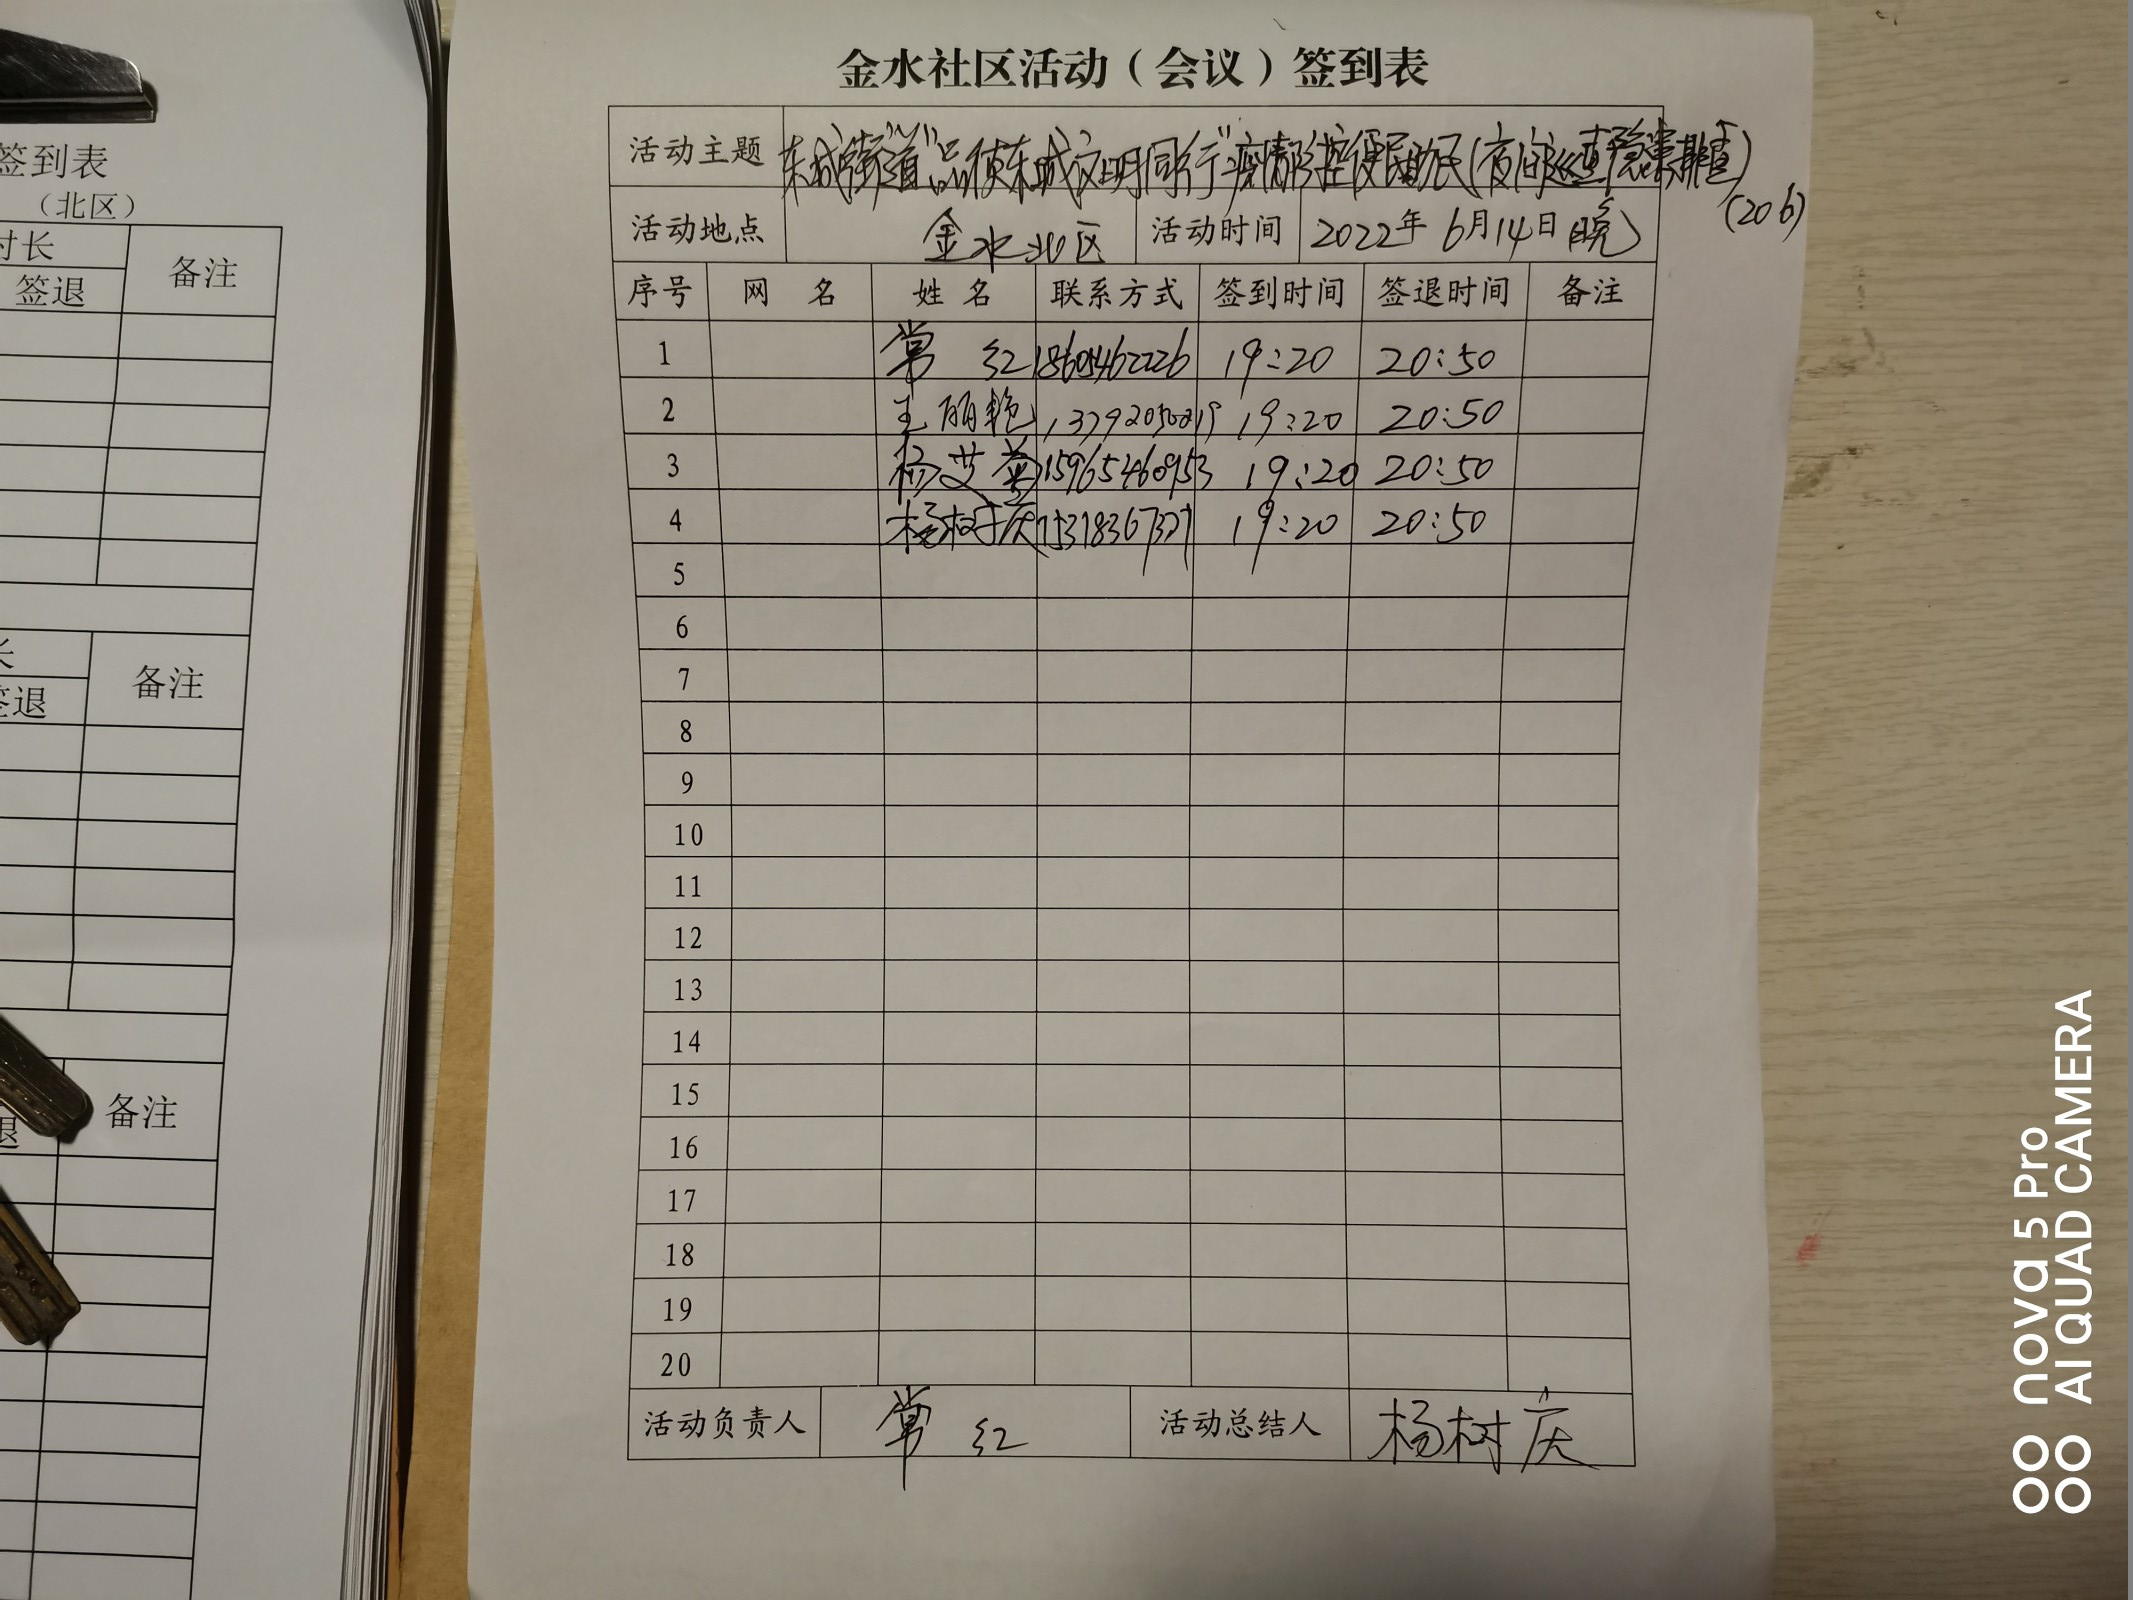 签到表
（北区）
时长 备注
签退
长 备注
签退
备注
退
金水社区活动（会议）签到表
活动主题 东城街道"品质东城文明同行"疫情防控便民助民(夜间巡查隐患排查)
(206)
活动地点 金水北区 活动时间 2022年6月14日晚
序号 网 名 姓 名 联系方式 签到时间 签退时间 备注
1 常 红 18605462226 19:20 20:50
2 王丽艳 19:20 20:50
3 杨艾英 15965460953 19:20 20:50
4 杨树庆 15318367321 19:20 20:50
5
6
7
8
9
10
11
12
13
14
15
16
17
18
19
20
活动负责人 常 红 活动总结人 杨树庆
nova 5 Pro
AI QUAD CAMERA